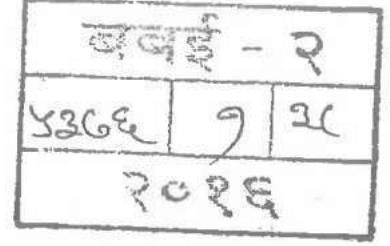 बबई - २
५३७६ १ ३८
२०१६